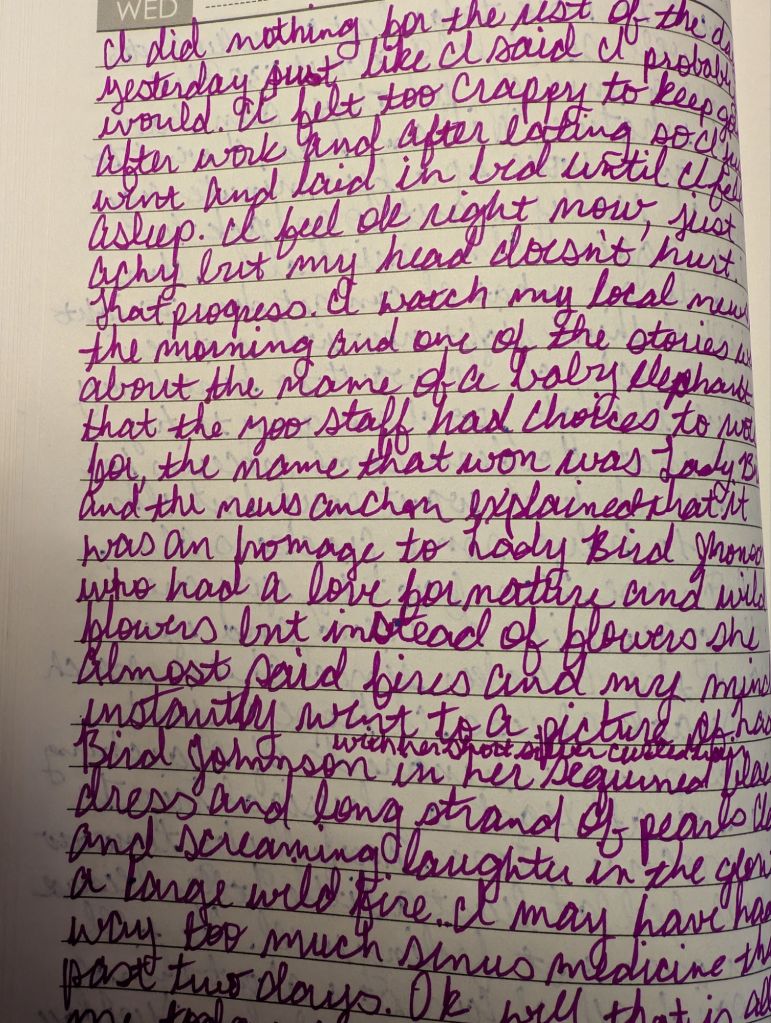 WED
I did nothing for the rest of the da
yesterday just like I said I probabl
would. I felt too crappy to keep go
after work and after eating so I ju
went and laid in bed until I fell
asleep. I feel ok right now, just
achy but my head doesn't hurt.
That progress. I watch my local news
the morning and one of the stories w
about the name of a baby elephant
that the zoo staff had choices to vo
for, the name that won was Lady B
and the news anchor explained that it
was an homage to Lady Bird Jhonso
who had a love for nature and wild
flowers but instead of flowers she
almost said fires and my mind
instantly went to a picture of
with her short silver curled hair
Bird Johnnson in her sequined blac
dress and long strand of pearls
and screaming laughter in the
a large wild fire. I may have had
way too much sinus medicine th
past two days. Ok well that is all
me